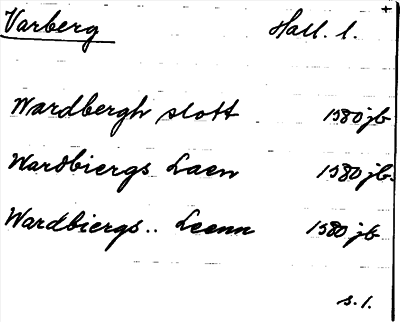 Varberg Hall. l.
Wardbergh slott 1580 jb
Wardbiergs Laen 1580 jb.
Wardbiergs.. Leenn 1580 jb
s. 1.